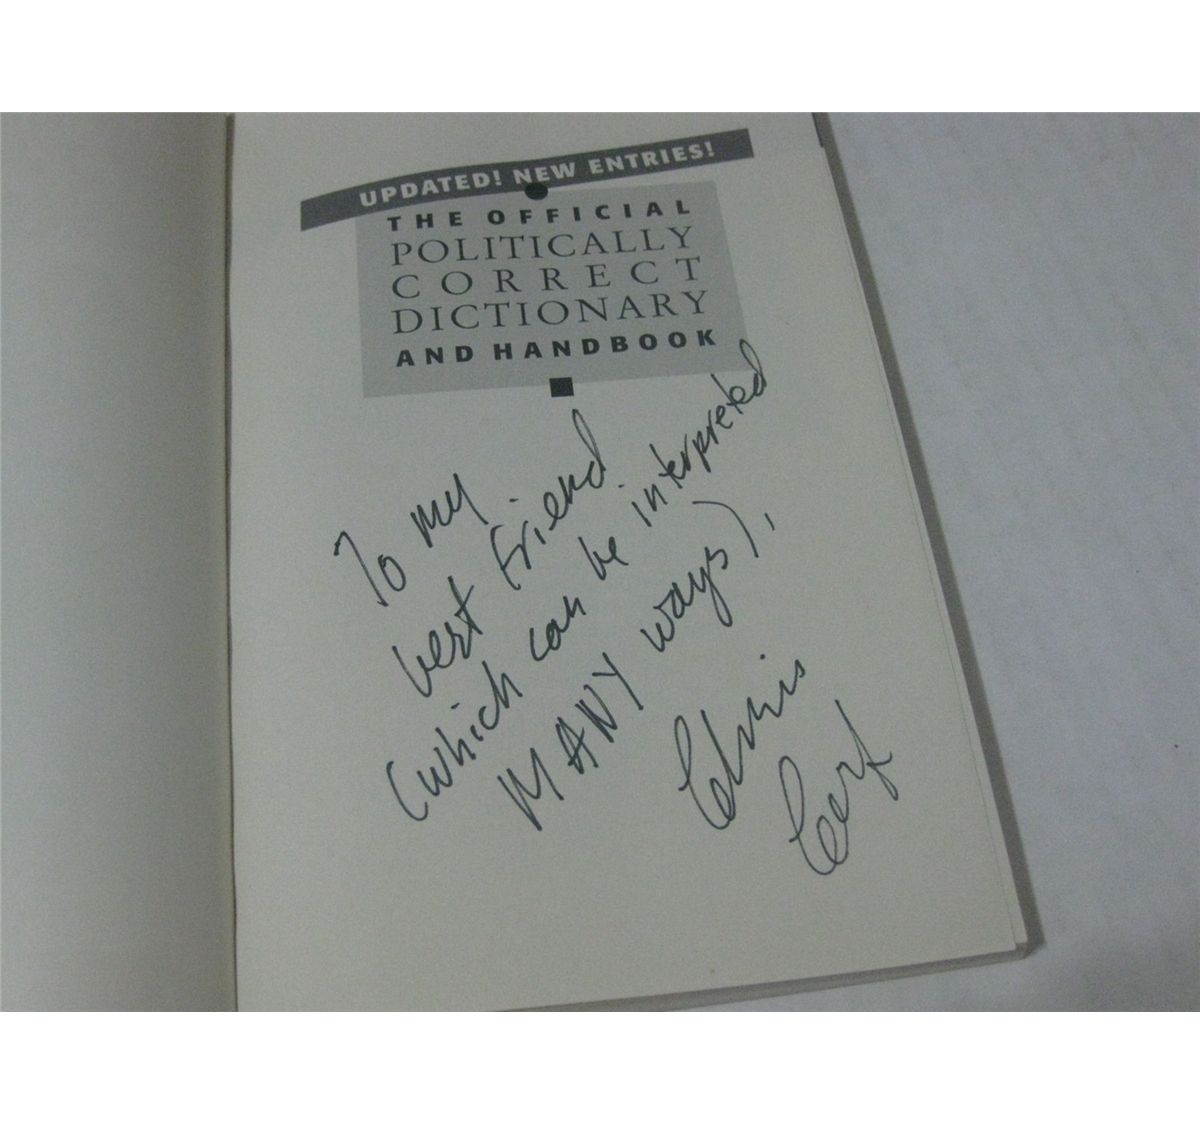 UPDATED! NEW ENTRIES!
THE OFFICIAL
POLITICALLY
CORRECT
DICTIONARY
AND HANDBOOK
To my
best friend
(which can be interpreted
MANY ways),
Chris
Cerf